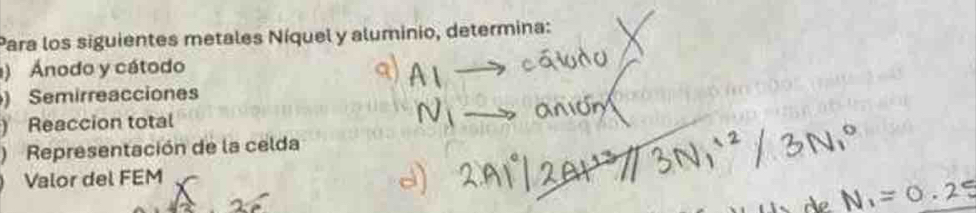 Para los siguientes metales Níquel y aluminio, determina:
) Ánodo y cátodo
) Semirreacciones
) Reaccion total
) Representación de la celda
) Valor del FEM
a) Al → cátodo X
Ni → anión
d) 2Al° / 2Al⁺³ // 3Ni⁺² / 3Ni°
de Ni = 0.25